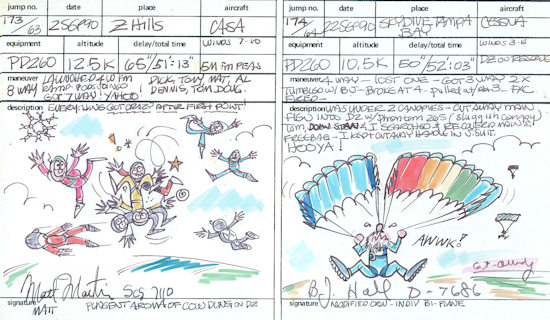 jump no. date place aircraft
173/63 2SEP90 Z HILLS CASA
equipment altitude delay/total time WINDS 7-10
PD260 12.5K 65"/51':13"
maneuver LAUNCHED 4 W FM DICK, TOM, MAT, AL
8 WAY RAMP DENNIS, TOM, DOUG.
GOT 7 WAY! YAHOO!
description EVERYTHING GOT CRAZY AFTER FIRST POINT!
Matt Martin SCS 7110
signature MATT PUNGENT AROMA OF COW DUNG ON DZ
jump no. date place aircraft
174/64 22SEP90 SKYDIVE TAMPA BAY CESSNA
equipment altitude delay/total time WINDS 3-5
PD260 10.5K 50"/52':03"
maneuver 4 WAY - LOST ONE - GOT 3 WAY 2X
TUMBLED W/ BJ - BROKE AT 4 - pulled at 3 - FXC
FIRED -
description WAS UNDER 2 CANOPIES - CUT AWAY MAIN
FLEW INTO DZ W/ Phantom 265 (sluggish canopy)
TOM, I SEARCHED & RECOVERED MAIN &
FREEBAG - I KEPT CUTAWAY HANDLE IN J.SUIT.
HOOYA!
AWWK!
cut-away
B.J. Hall D-7686
signature MODIFIED CRW - INDIV BI-PLANE